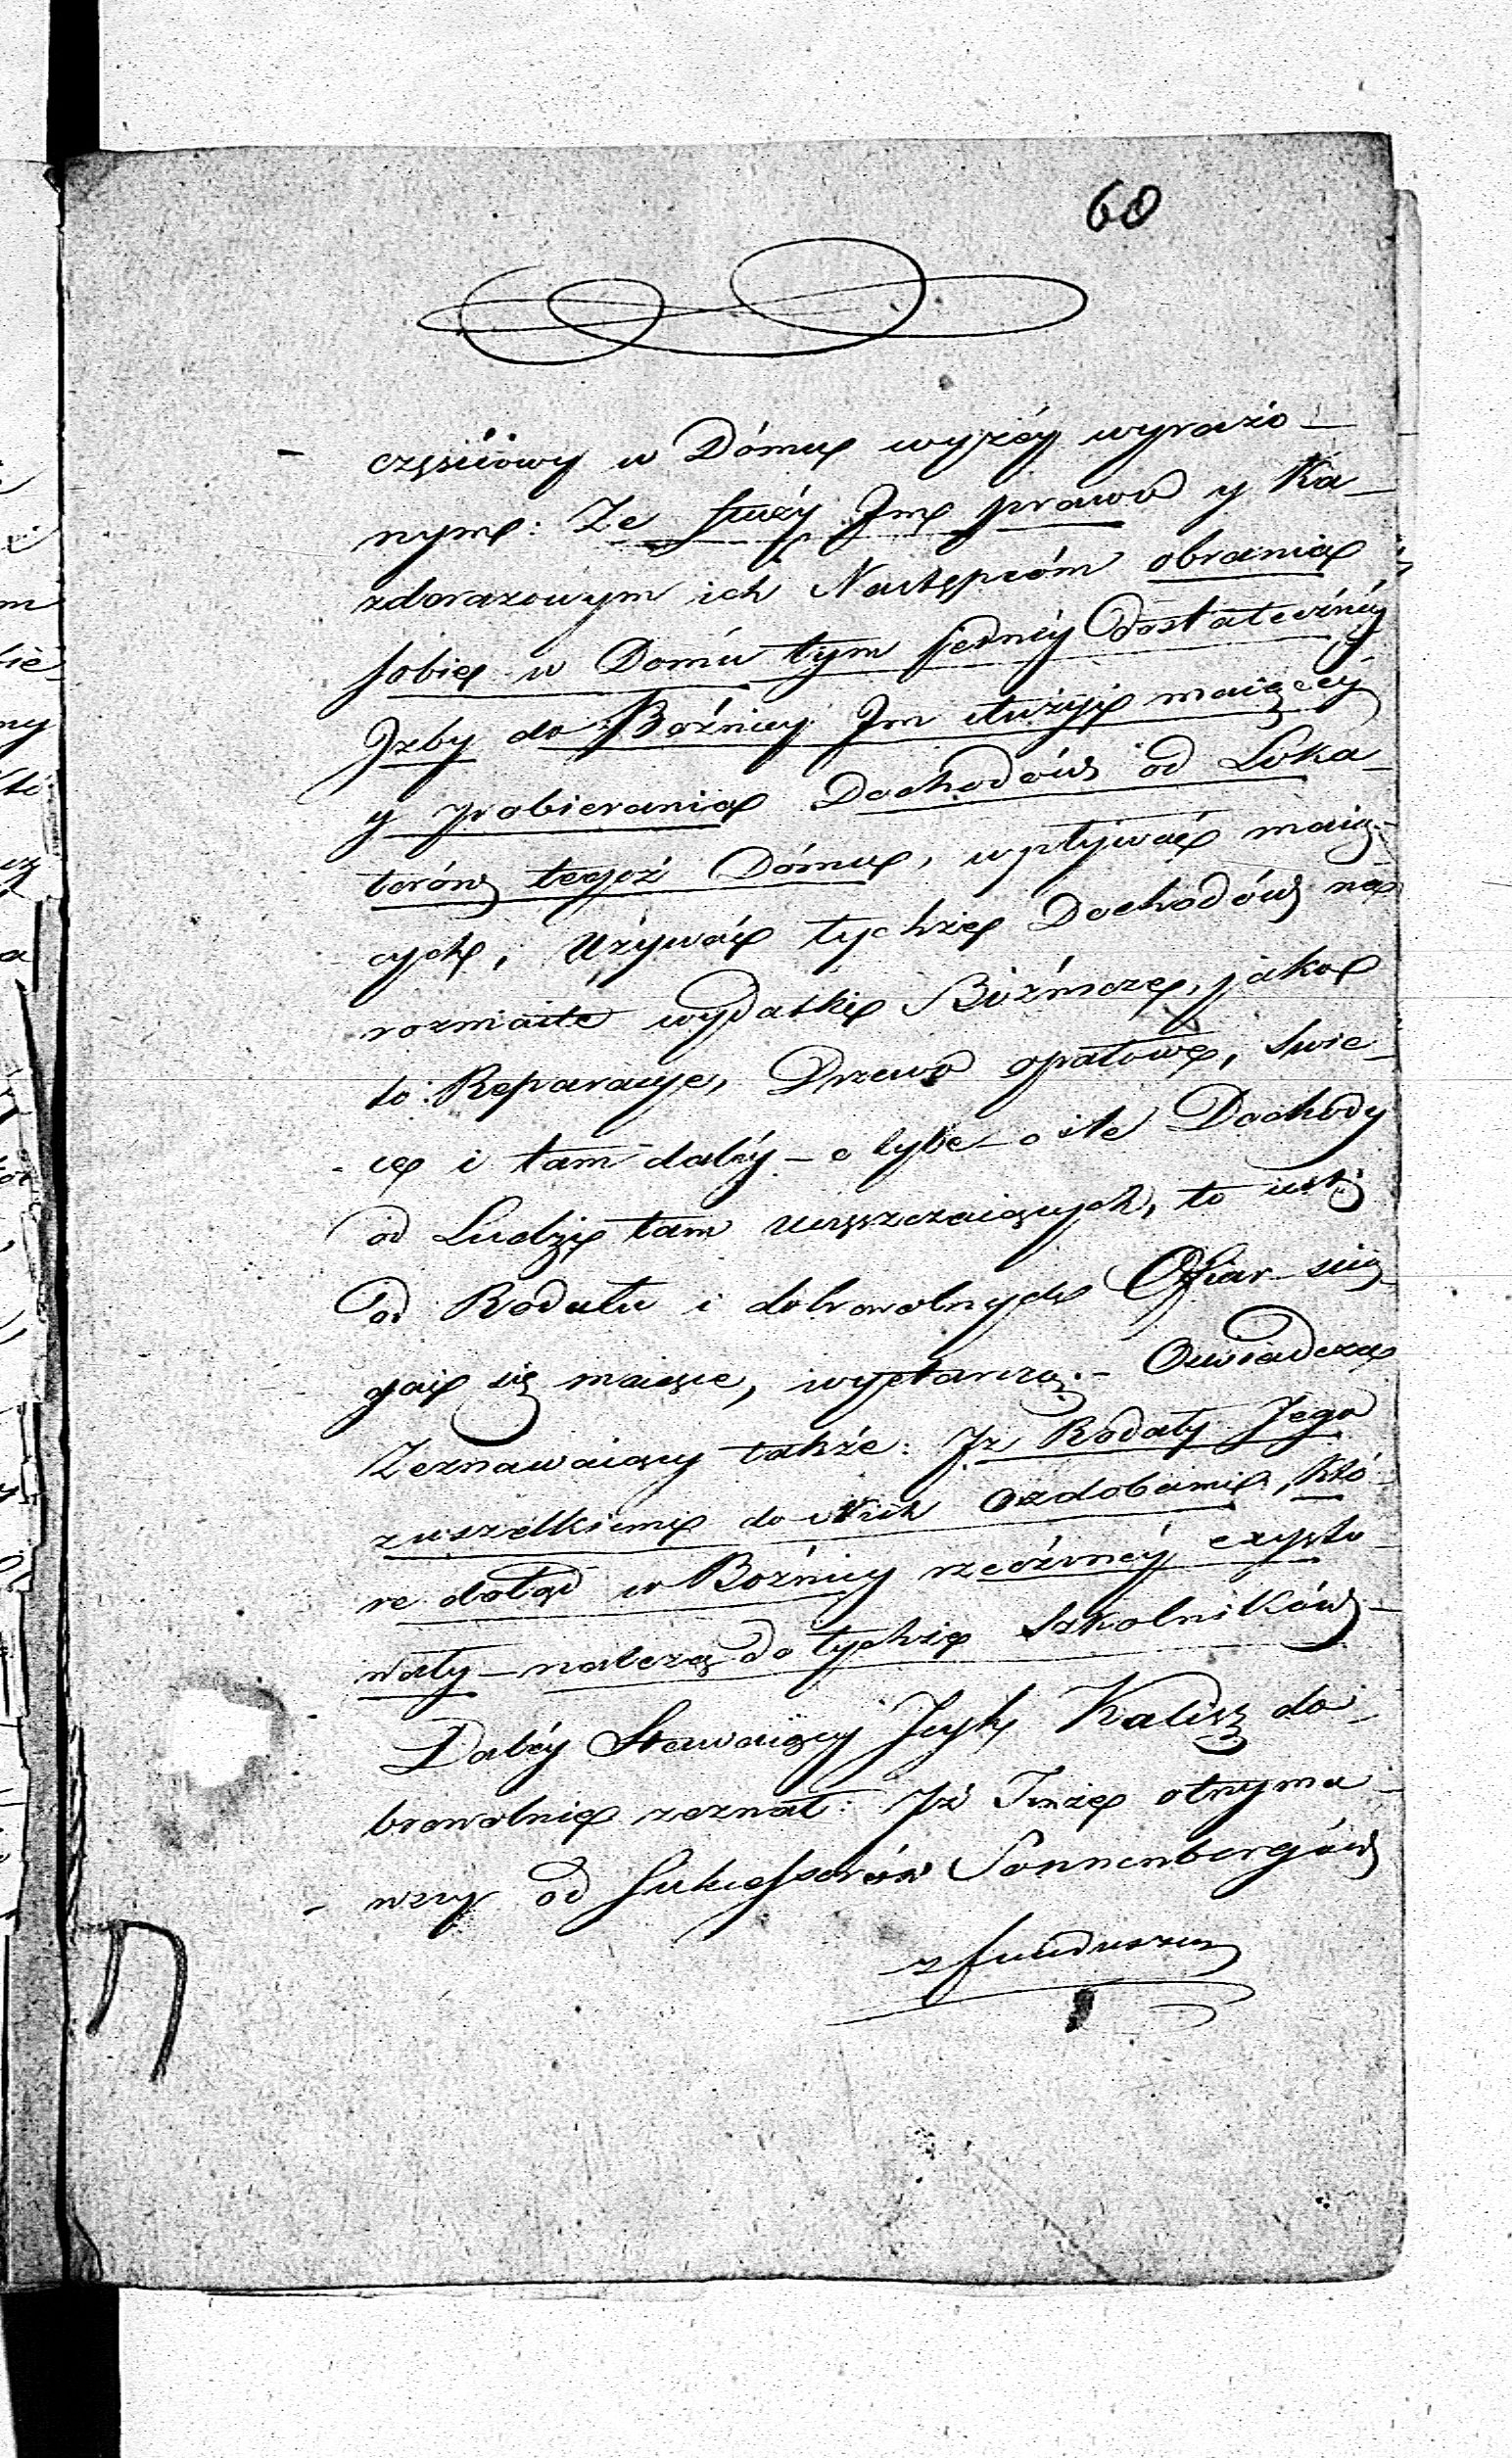 60
częściowy w Dómu wyżéy wyrażo-
nym: Ze służy Im prawo y Ka-
zdorazowym ich Następcóm obrania
sobie w Domu tym jednéy dostatecznéy
Izby do Bóźnicy Im służyć maiącéy
y pobierania Dochodów od Loka-
torów tegoż Dómu, wpływać maią-
cych, Używać tychże Dochodów na
rozmaite wydatki Bóźnicze, jako
to: Reparacye, Drzewo opałowe, Swie-
ce i tam daléy - o tyle - o ile Dochody
od Ludzi tam uczęszczaiących, to iest
od Rodału i dobrowolnych Ofiar scią-
gać się maiące, wystarczą. - Oswiadcza
Zeznawaiący także: Iz Rodały Jego
z wszelkiemi do Nich Ozdobami, któ-
re dotąd w Bóźnicy rzeczonéy exysto-
wały - należą do tychże Szkolników -
Daléy Stawaiący Icyk Kalisz do-
browolnie zeznał: Iż Tenże otrzyma-
wszy od Sukcessorów Sonnenbergów
z funduszu